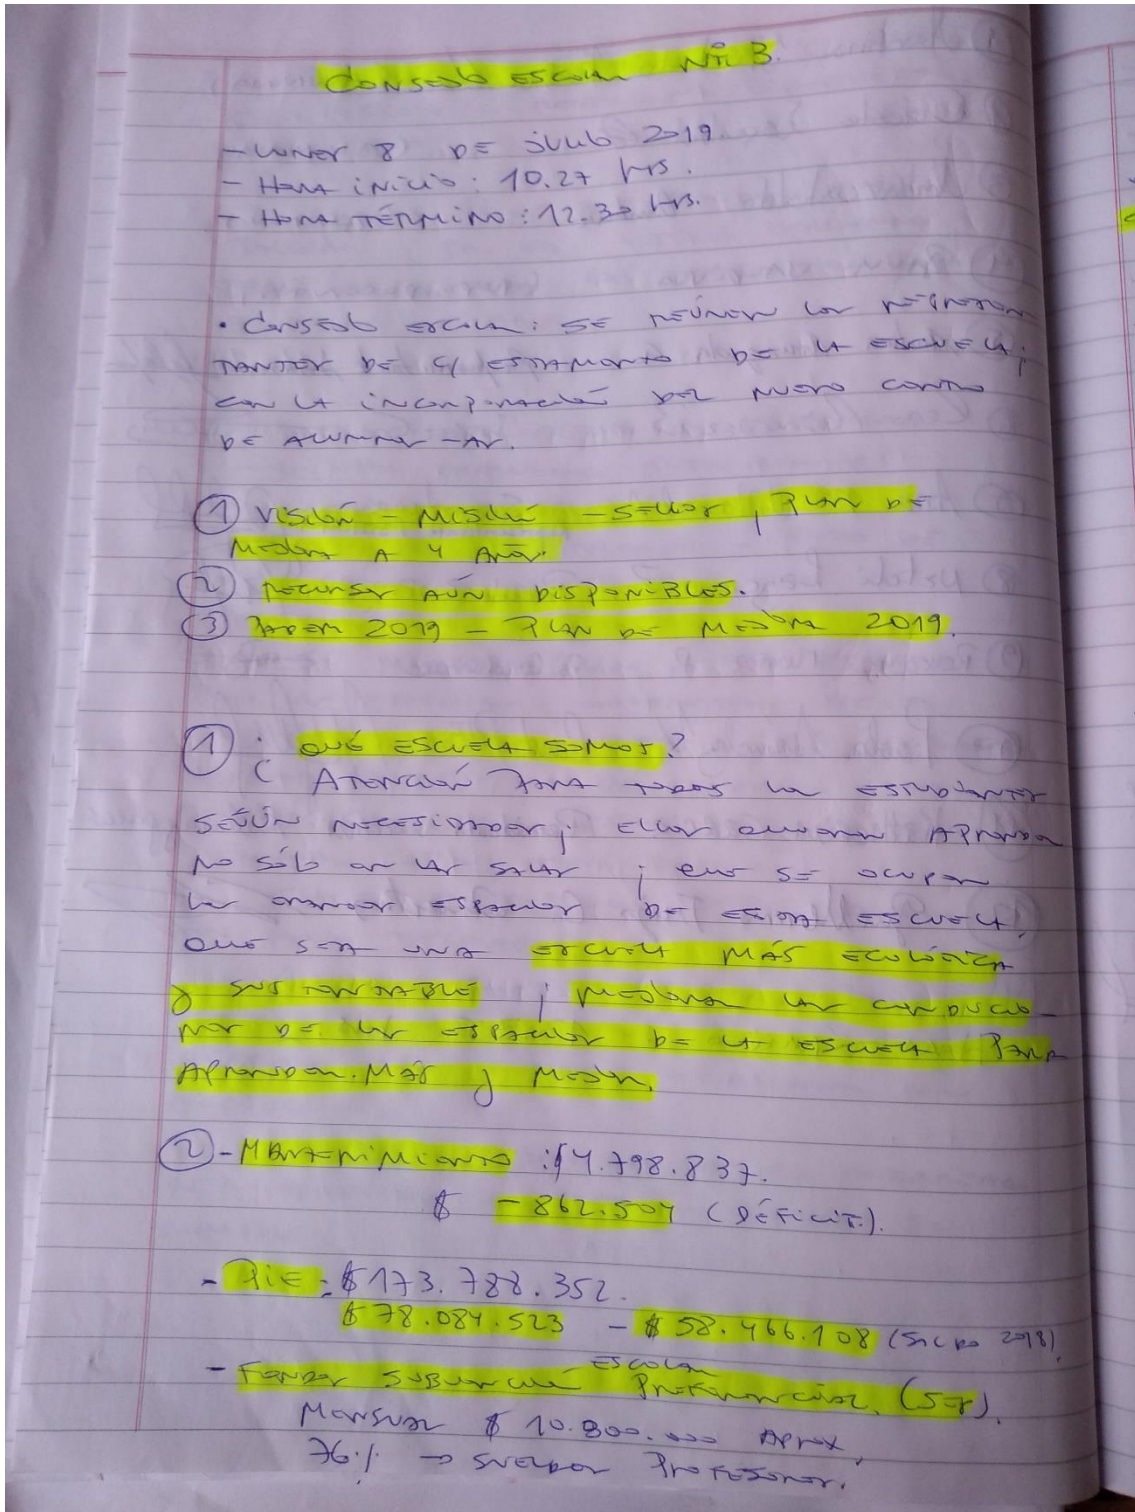 CONSEJO ESCOLAR Nº 3.
- LUNES 8 DE JULIO 2019.
- HORA INICIO: 10.27 HRS.
- HORA TÉRMINO: 12.30 HRS.
• CONSEJO ESCOLAR: SE REÚNEN LOS REPRESEN
TANTES DE C/ ESTAMENTO DE LA ESCUELA;
CON LA INCORPORACIÓN DEL NUEVO CENTRO
DE ALUMNOS-AS.
① VISIÓN - MISIÓN - SELLOS, PLAN DE
MEJORA A 4 AÑOS.
② RECURSOS AÚN DISPONIBLES.
③ PADEM 2019 - PLAN DE MEJORA 2019.
① ¿QUÉ ESCUELA SOMOS?
ATENCIÓN PARA TODOS LOS ESTUDIANTES
SEGÚN NECESIDADES; ELLOS QUIEREN APRENDER
NO SÓLO EN LAS SALAS; QUE SE OCUPEN
LOS GRANDES ESPACIOS DE ESTA ESCUELA.
QUE SEA UNA ESCUELA MÁS ECOLÓGICA
Y SUSTENTABLE; MEJORAR LAS CONDICIO-
NES DE LOS ESPACIOS DE LA ESCUELA PARA
APRENDER MÁS Y MEJOR.
② - MANTENIMIENTO: $4.798.837.
$ -862.504 (DÉFICIT).
- PIE: $173.788.352.
$78.084.523 - $58.466.108 (SALDO 2018)
- FONDOS SUBVENCIÓN ESCOLAR PREFERENCIAL. (SEP).
MENSUAL $10.800.000 APROX.
76% → SUELDOS PROFESORES.